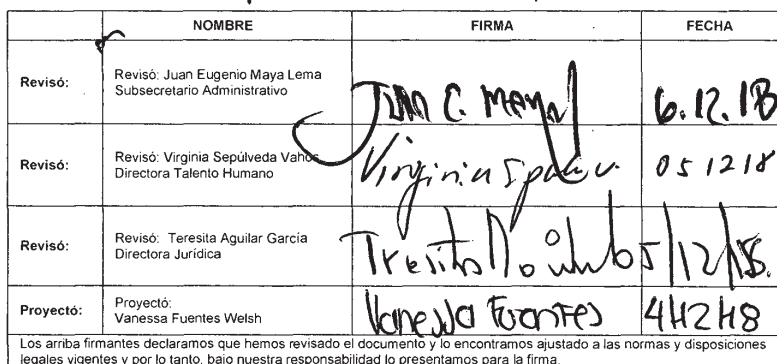 NOMBRE FIRMA FECHA
Revisó: Revisó: Juan Eugenio Maya Lema
Subsecretario Administrativo
Juan E. Maya 6.12.18
Revisó: Revisó: Virginia Sepúlveda Vahos
Directora Talento Humano
Virginia 051218
Revisó: Revisó: Teresita Aguilar García
Directora Jurídica
Teresita 5/12/18.
Proyectó: Proyectó:
Vanessa Fuentes Welsh
Vanessa Fuentes 4/12/18
Los arriba firmantes declaramos que hemos revisado el documento y lo encontramos ajustado a las normas y disposiciones
legales vigentes y por lo tanto, bajo nuestra responsabilidad lo presentamos para la firma.